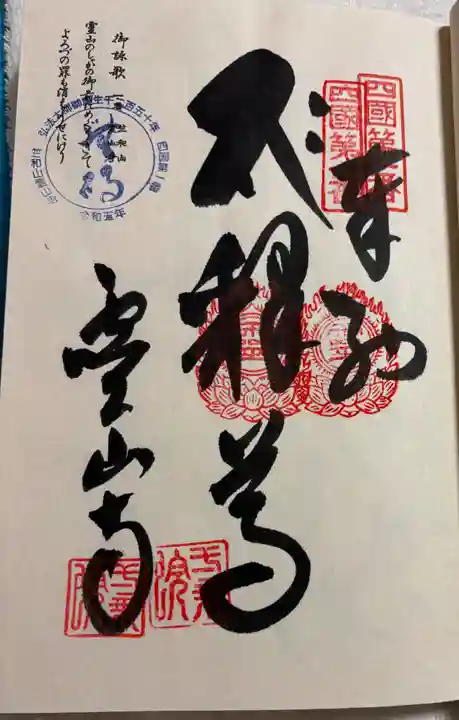 四國第一番
四國第一番
奉納
釋尊
霊山寺
御詠歌
霊山のしゃかの御前にめぐりきて
よろづの罪も消えうせにけり
弘法大師御誕生千二百五十年
四国第一番
竺和山霊山寺
令和五年